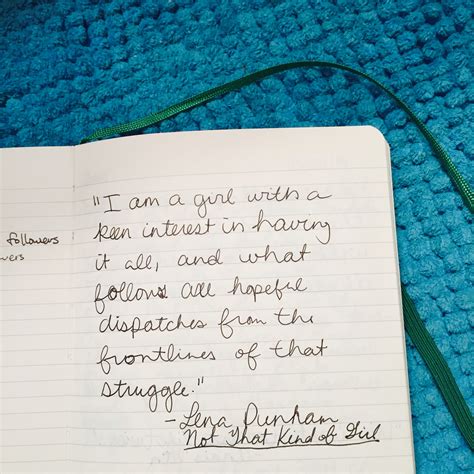 followers
"I am a girl with a
keen interest in having
it all, and what
follows are hopeful
dispatches from the
frontlines of that
struggle."
- Lena Dunham
Not That Kind of Girl